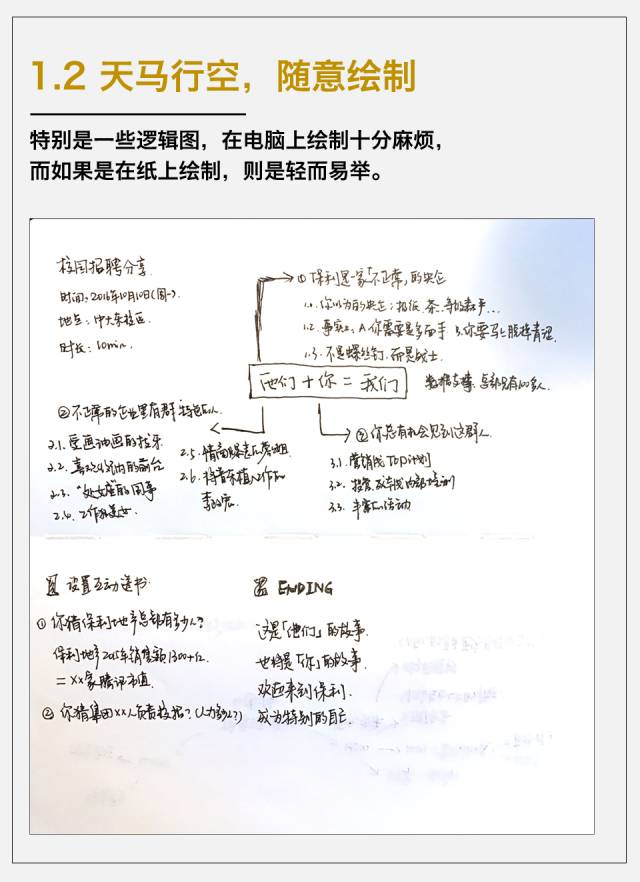 1.2 天马行空，随意绘制
特别是一些逻辑图，在电脑上绘制十分麻烦，
而如果是在纸上绘制，则是轻而易举。
校园招聘分享.
时间：2016年10月10日(周一).
地点：中大东校区.
时长：10min.
① 保利是一家「不正常」的央企
1.1. 你以为的央企：报纸、茶、
1.2. 事实上，A.你需要是多面手 B.你要马上脱稚青涩.
1.3. 不是螺丝钉，而是战士.
他们 + 你 = 我们
数据支撑，总部只有100多人.
② 不正常的企业里有群特色的人.
2.1. 爱画油画的
2.2. 的前台
2.3. "处女座"的同事
2.4. 工作
2.5. 情商爆表的
2.6. 将音乐植入
③ 你总有机会见到这群人.
3.1. 营销线TOP计划
3.2. 内部培训
3.3. 丰富的活动
设置互动送书.
① 你猜保利地产总部有多少人?
保利地产2015年销售额1500+亿.
= xx家腾讯市值.
② 你猜集团xx人负责投拓?
ENDING
这是「他们」的故事.
也将是「你」的故事.
欢迎来到保利.
成为特别的自己.